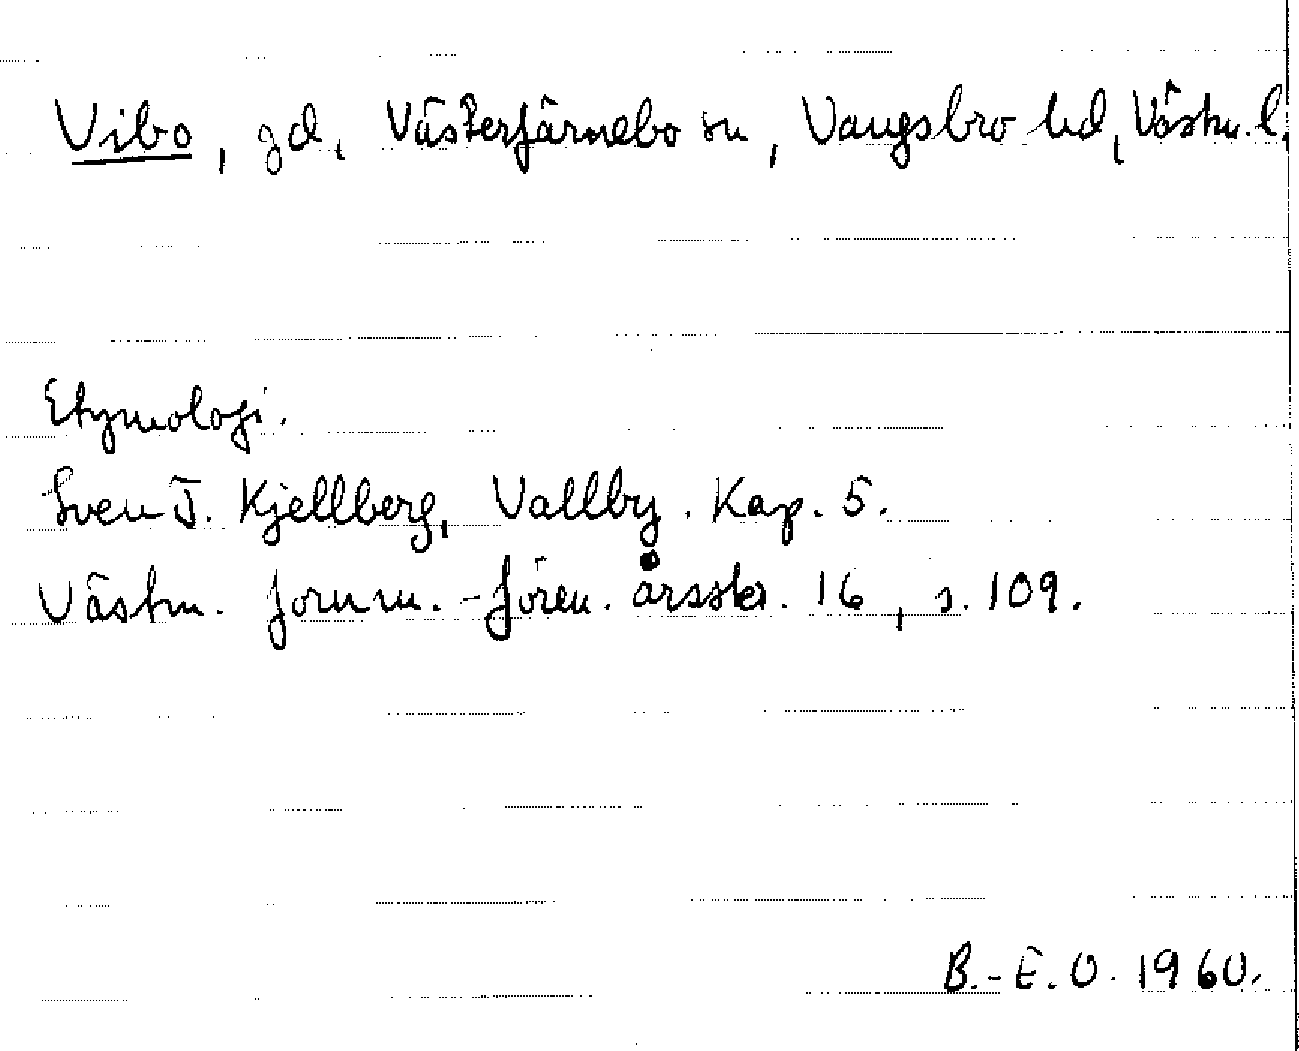 Vibo, gd, Västerfärnebo sn, Vangsbro hd, Västm. l.
Etymologi.
Sven T. Kjellberg, Vallby. Kap. 5.
Västm. fornm.-fören. årsskr. 16, s. 109.
B.-E. O. 1960.